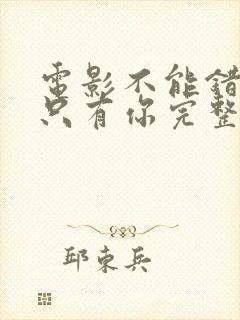 電影不能錯
只有你完整
邱東兵